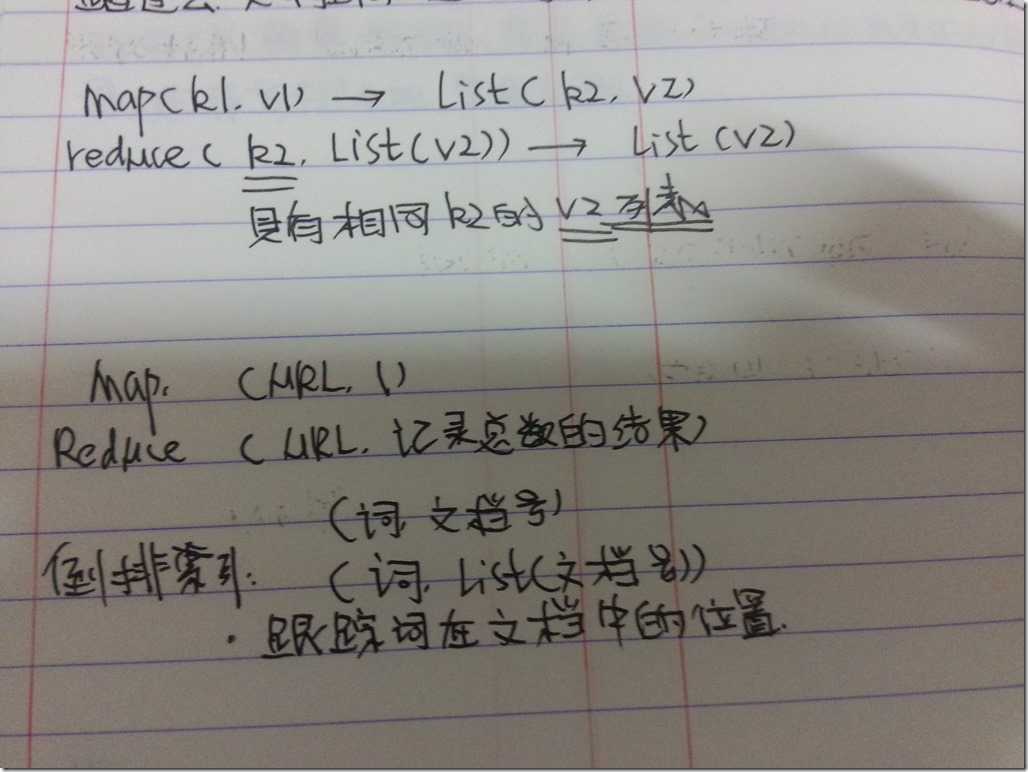 map(k1, v1) → List(k2, v2)
reduce(k2, List(v2)) → List(v2)
具有相同k2的v2列表
Map. (URL, 1)
Reduce (URL, 记录总数的结果)
(词, 文档号)
倒排索引: (词, List(文档号))
· 跟踪词在文档中的位置.